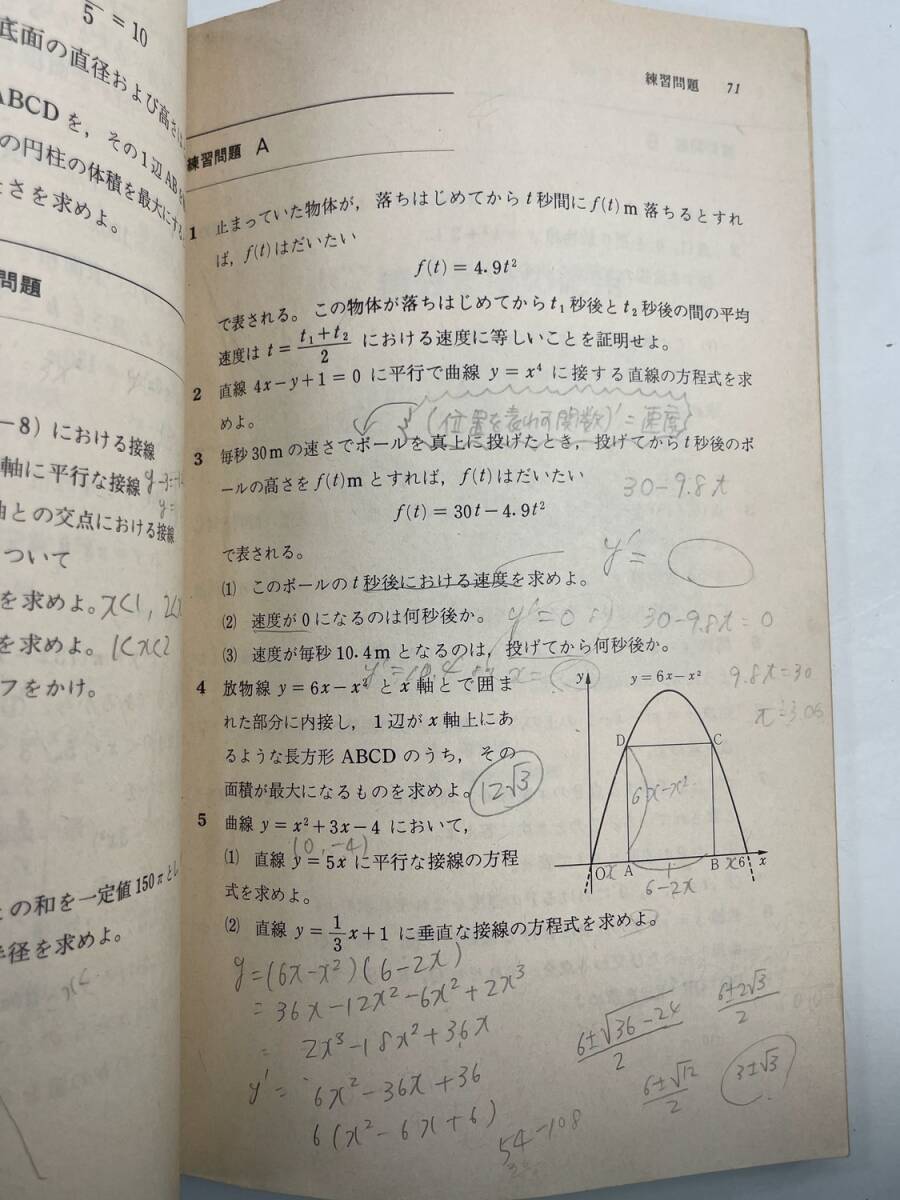 5 = 10
底面の直径および高さ
ABCDを，その1辺AB
の円柱の体積を最大にする
さを求めよ。
問題
-8) における接線
軸に平行な接線
との交点における接線
ついて
を求めよ。x<1, 2<x
を求めよ。1<x<2
フをかけ。
の和を一定値150πとし
半径を求めよ。
練習問題 71
練習問題 A
1 止まっていた物体が，落ちはじめてからt秒間にf(t)m落ちるとすれ
ば，f(t)はだいたい
f(t)=4.9t²
で表される。この物体が落ちはじめてからt₁秒後とt₂秒後の間の平均
速度は t=(t₁+t₂)/2 における速度に等しいことを証明せよ。
2 直線 4x-y+1=0 に平行で曲線 y=x⁴ に接する直線の方程式を求
めよ。
(位置を表わす関数)'=速度
3 毎秒30mの速さでボールを真上に投げたとき，投げてからt秒後のボ
ールの高さをf(t)mとすれば，f(t)はだいたい
30-9.8t
f(t)=30t-4.9t²
で表される。
y'=
(1) このボールのt秒後における速度を求めよ。
(2) 速度が0になるのは何秒後か。
y'=0 より 30-9.8t=0
(3) 速度が毎秒10.4mとなるのは，投げてから何秒後か。
y'=10.4 より x=
9.8t=30
4 放物線 y=6x-x² とx軸とで囲ま
れた部分に内接し，1辺がx軸上にあ
るような長方形ABCDのうち，その
面積が最大になるものを求めよ。
12√3
y
y=6x-x²
D
C
6x-x²
O
x
A
B
x
6
x
6-2x
5 曲線 y=x²+3x-4 において，
(0,-4)
(1) 直線 y=5x に平行な接線の方程
式を求めよ。
(2) 直線 y=1/3 x+1 に垂直な接線の方程式を求めよ。
y=(6x-x²)(6-2x)
=36x-12x²-6x²+2x³
= 2x³-18x²+36x
y'= 6x²-36x+36
6(x²-6x+6)
(6±√(36-24))/2
(6±2√3)/2
(6±√12)/2
3±√3
54-108